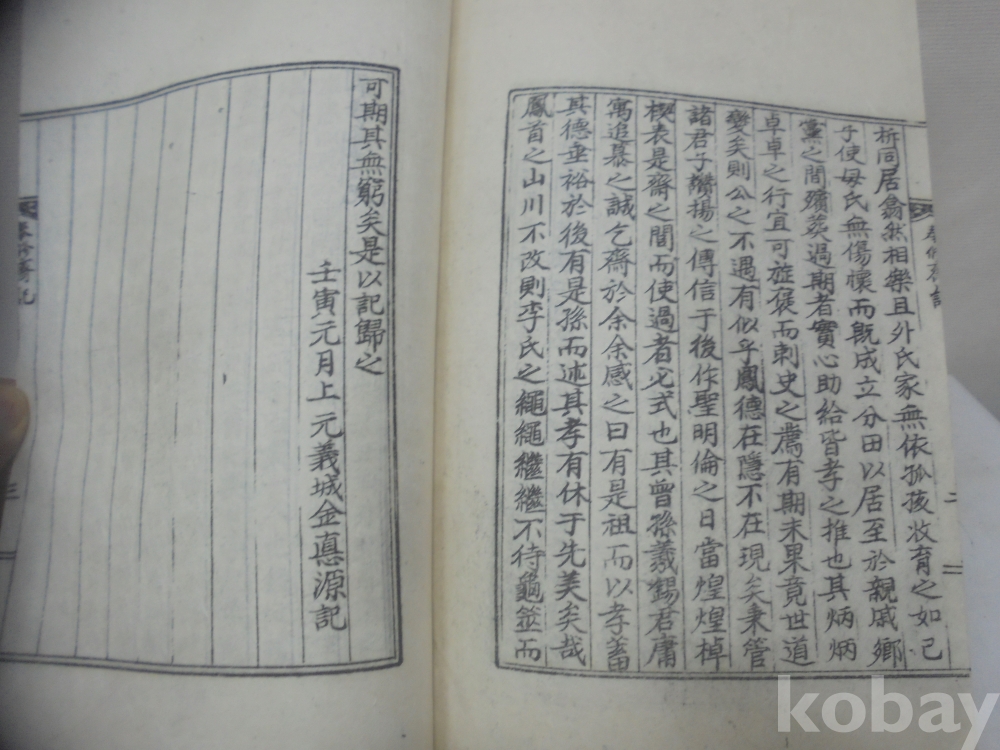 析同居翕然相樂且外氏家無依孤孩收育之如己
子使毋氏無傷懷而旣成立分田以居至於親戚鄉
黨之間殯葬過期者實心助給皆孝之推也其炳炳
卓卓之行宜可旌褒而刺史之薦有期未果竟世道
變矣則公之不遇有似乎鳳德在隱不在現矣秉管
諸君子讚揚之傳信于後作聖明倫之日當煌煌棹
楔表是齋之閭而使過者必式也其曾孫羲錫君庸
寓追慕之誠乞齋於余余感之曰有是祖而以孝蓄
其德垂裕於後有是孫而述其孝有休于先美矣哉
鳳首之山川不改則李氏之繩繩繼繼不待龜筮而
二
可期其無窮矣是以記歸之
壬寅元月上元義城金悳源記
三
kobay